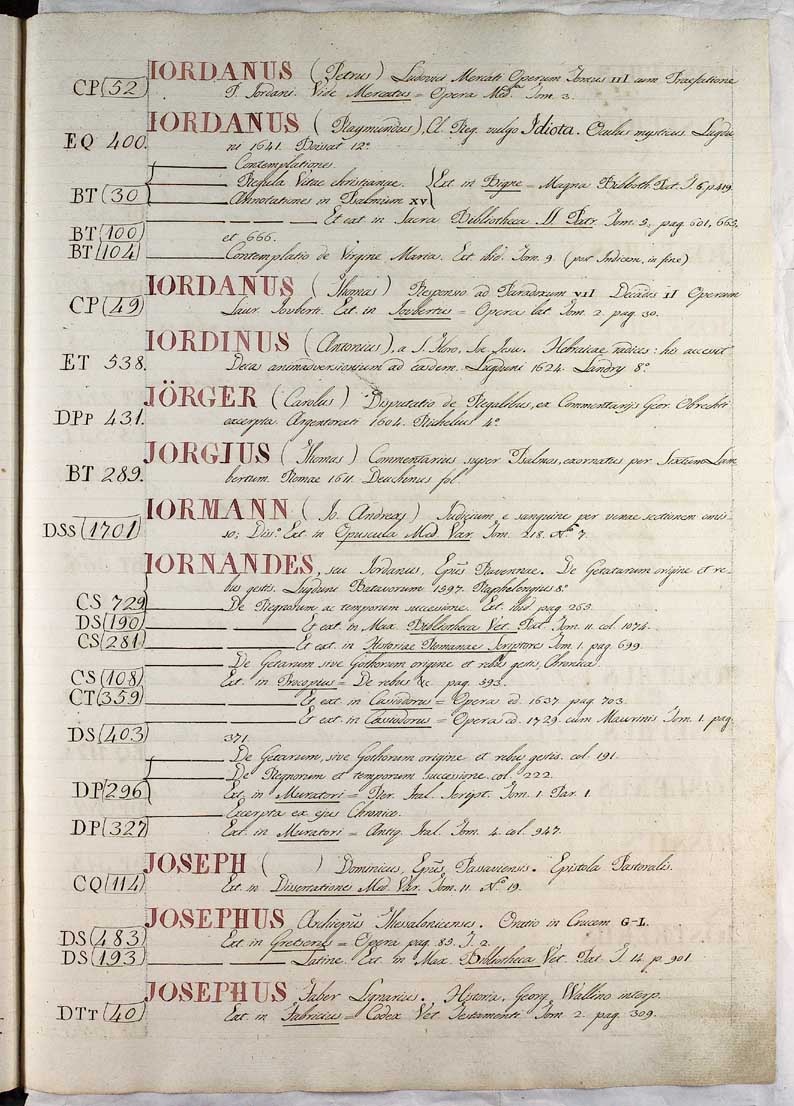 IORDANUS (Petrus) Ludovici Mercati Operum Tomus III cum Praefatione
CP (52) P. Jordani. Vide Mercatus = Opera Med.ca Tom. 3.
IORDANUS (Raymundus), Cl. Reg. vulgo Idiota. Oculus mysticus. Lugdu
EQ 400. ni 1641. Boissat 12.°
Contemplationes.
Regula Vitae christianae. Ext. in Bigne = Magna Biblioth. Pat. T. 5. p. 419.
BT (30) Annotationes in Psalmum XV
Et ext. in Sacra Bibliotheca SS. Patr. Tom. 3. pag. 601, 663,
BT (100) et 666.
BT (104) Contemplatio de Virgine Maria. Ext. ibid. Tom. 9. (post Indicem, in fine)
IORDANUS (Thomas) Responsio ad Paradoxum VII Decadis II Operum
CP (49) Laur. Jouberti. Ext. in Joubertus = Opera lat. Tom. 2. pag. 30.
IORDINUS (Antonius), a S. Floro, Soc. Jesu. Hebraicae radices: his accesit
ET 538. Deca animadversionum ad easdem. Lugduni 1624. Landry 8.°
JÖRGER (Carolus) Disputatio de Regalibus, ex Commentarijs Geor. Obrechti
DPP 431. excerpta. Argentorati 1604. Richelius 4.°
JORGIUS (Thomas) Commentarius super Psalmos, exornatus per Sixtum Lam
BT 289. bertum. Romae 1611. Deuchinus fol.
IORMANN (Io. Andreas) Judicium e sanguine per venae sectionem emis-
DSS (1701) so; Diss.° Ext. in Opuscula Med. Var. Tom. 218. N.° 7.
IORNANDES, seu Jordanus, Epũs Ravennae. De Getatarum origine et re-
bus gestis. Lugduni Batavorum 1597. Raphelengius 8.°
CS 729 De Regnorum ac temporum successione. Ext. ibid. pag. 263.
DS (190) Et ext. in Max. Bibliotheca Vet. Pat. Tom. 11. col. 1074.
CS (281) Et ext. in Historiae Romanae Scriptores Tom. 1. pag. 699.
De Getarum sive Gothorum origine et rebus gestis, Chronica.
CS (108) Ext. in Procopius = De rebus &c. pag. 393.
CT (359) Et ext. in Cassiodorus = Opera ed. 1637. pag. 703.
Et ext. in Cassiodorus = Opera ed. 1729. cum Maurinis Tom. 1. pag.
DS (403) 371.
De Getarum, sive Gothorum origine et rebus gestis. col. 191.
De Regnorum et temporum Successione. col. 222.
DP (296 Ext. in Muratori = Rer. Ital. Script. Tom. 1. Par. 1.
Excerpta ex ejus Chronico.
DP (327) Ext. in Muratori = Antiq. Ital. Tom. 4. col. 947.
JOSEPH ( ) Dominicus, Epũs Passaviensis. Epistola Pastoralis.
CQ (114) Ext. in Dissertationes Med. Var. Tom. 11. N.° 19.
JOSEPHUS Archiepũs Thessalonicenses. Oratio in Crucem G-L.
DS (483) Ext. in Gretserus = Opera pag. 85. T. 2.
DS (193) Latine. Ext. in Max. Bibliotheca Vet. Pat. T. 14. p. 901.
JOSEPHUS Faber Lignarius. Historia, Georg. Wallino interp.
DTT (40) Ext. in Fabricius = Codex Vet. Testamenti Tom. 2. pag. 309.